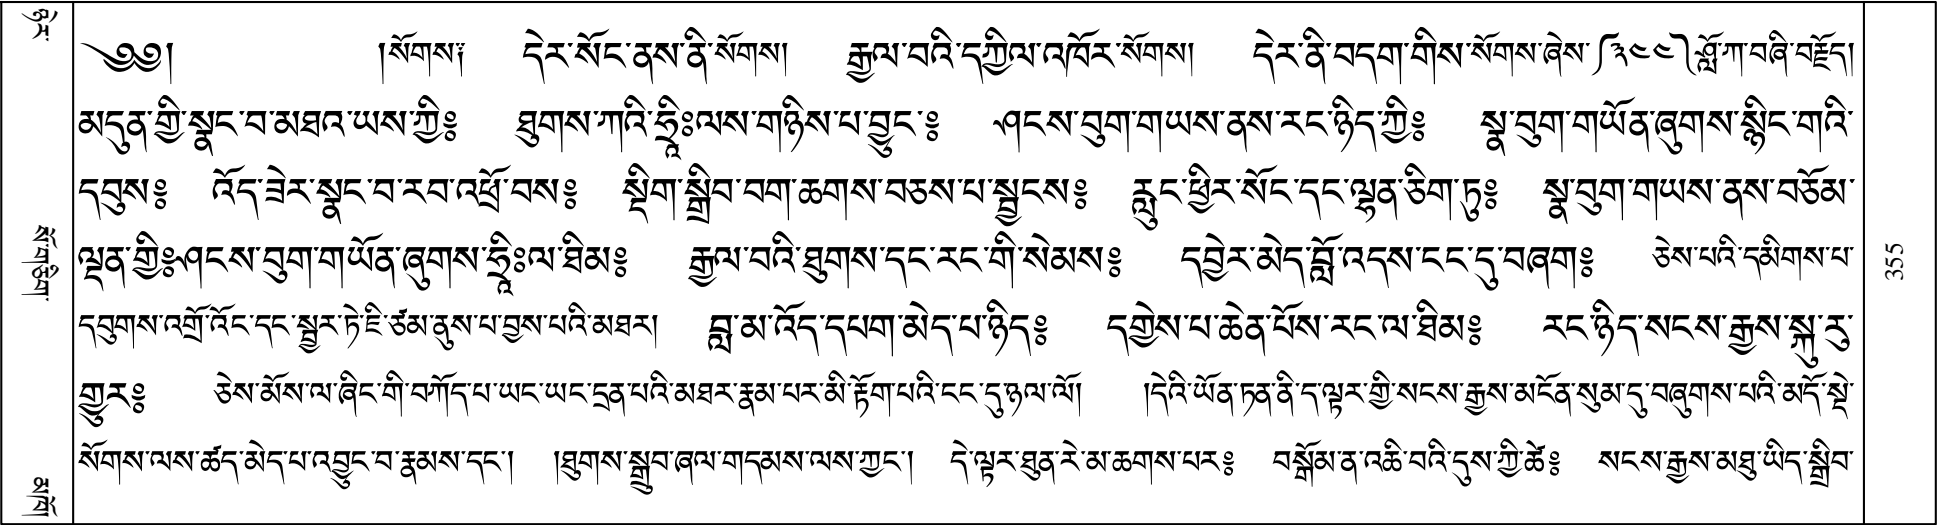 ༄༅། །སོགས། དེར་སོང་ནས་ནི་སོགས། རྒྱལ་བའི་དཀྱིལ་འཁོར་སོགས། དེར་ནི་བདག་གིས་སོགས་ཞེས་༼༣༤༤༽ཤློ་ཀ་བཞི་བརྗོད།
མདུན་གྱི་སྣང་བ་མཐའ་ཡས་ཀྱི༔ ཐུགས་ཀའི་ཧྲཱིཿལས་གཉིས་པ་བྱུང་༔ ཤངས་བུག་གཡས་ནས་རང་ཉིད་ཀྱི༔ སྣ་བུག་གཡོན་ཞུགས་སྙིང་གའི་
དབུས༔ འོད་ཟེར་སྣང་བ་རབ་འཕྲོ་བས༔ སྡིག་སྒྲིབ་བག་ཆགས་བཅས་པ་སྦྱངས༔ རླུང་ཕྱིར་སོང་དང་ལྷན་ཅིག་ཏུ༔ སྣ་བུག་གཡས་ནས་བཅོམ་
ལྡན་གྱི༔ཤངས་བུག་གཡོན་ཞུགས་ཧྲཱིཿལ་ཐིམ༔ རྒྱལ་བའི་ཐུགས་དང་རང་གི་སེམས༔ དབྱེར་མེད་བློ་འདས་ངང་དུ་བཞག༔ ཅེས་པའི་དམིགས་པ་
དབུགས་འགྲོ་འོང་དང་སྦྱར་ཏེ་ཇི་ཙམ་ནུས་པ་བྱས་པའི་མཐར། བླ་མ་འོད་དཔག་མེད་པ་ཉིད༔ དགྱེས་པ་ཆེན་པོས་རང་ལ་ཐིམ༔ རང་ཉིད་སངས་རྒྱས་སྐུ་རུ་
གྱུར༔ ཅེས་མོས་ལ་ཞིང་གི་བཀོད་པ་ཡང་ཡང་དྲན་པའི་མཐར་རྣམ་པར་མི་རྟོག་པའི་ངང་དུ་ཉལ་ལོ། །དེའི་ཡོན་ཏན་ནི་ད་ལྟར་གྱི་སངས་རྒྱས་མངོན་སུམ་དུ་བཞུགས་པའི་མདོ་སྡེ་
སོགས་ལས་ཚད་མེད་པ་འབྱུང་བ་རྣམས་དང་། །ཐུགས་སྒྲུབ་ཞལ་གདམས་ལས་ཀྱང་། དེ་ལྟར་ཐུན་རེ་མ་ཆགས་པར༔ བསྒོམ་ན་འཆི་བའི་དུས་ཀྱི་ཚེ༔ སངས་རྒྱས་མཐུ་ཡིད་སྒྲིབ་
སོ་བཅིག་
355